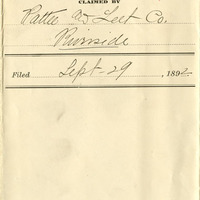 CLAIMED BY
Pattee & Lett Co.
Riverside
Filed Sept - 29, 1892